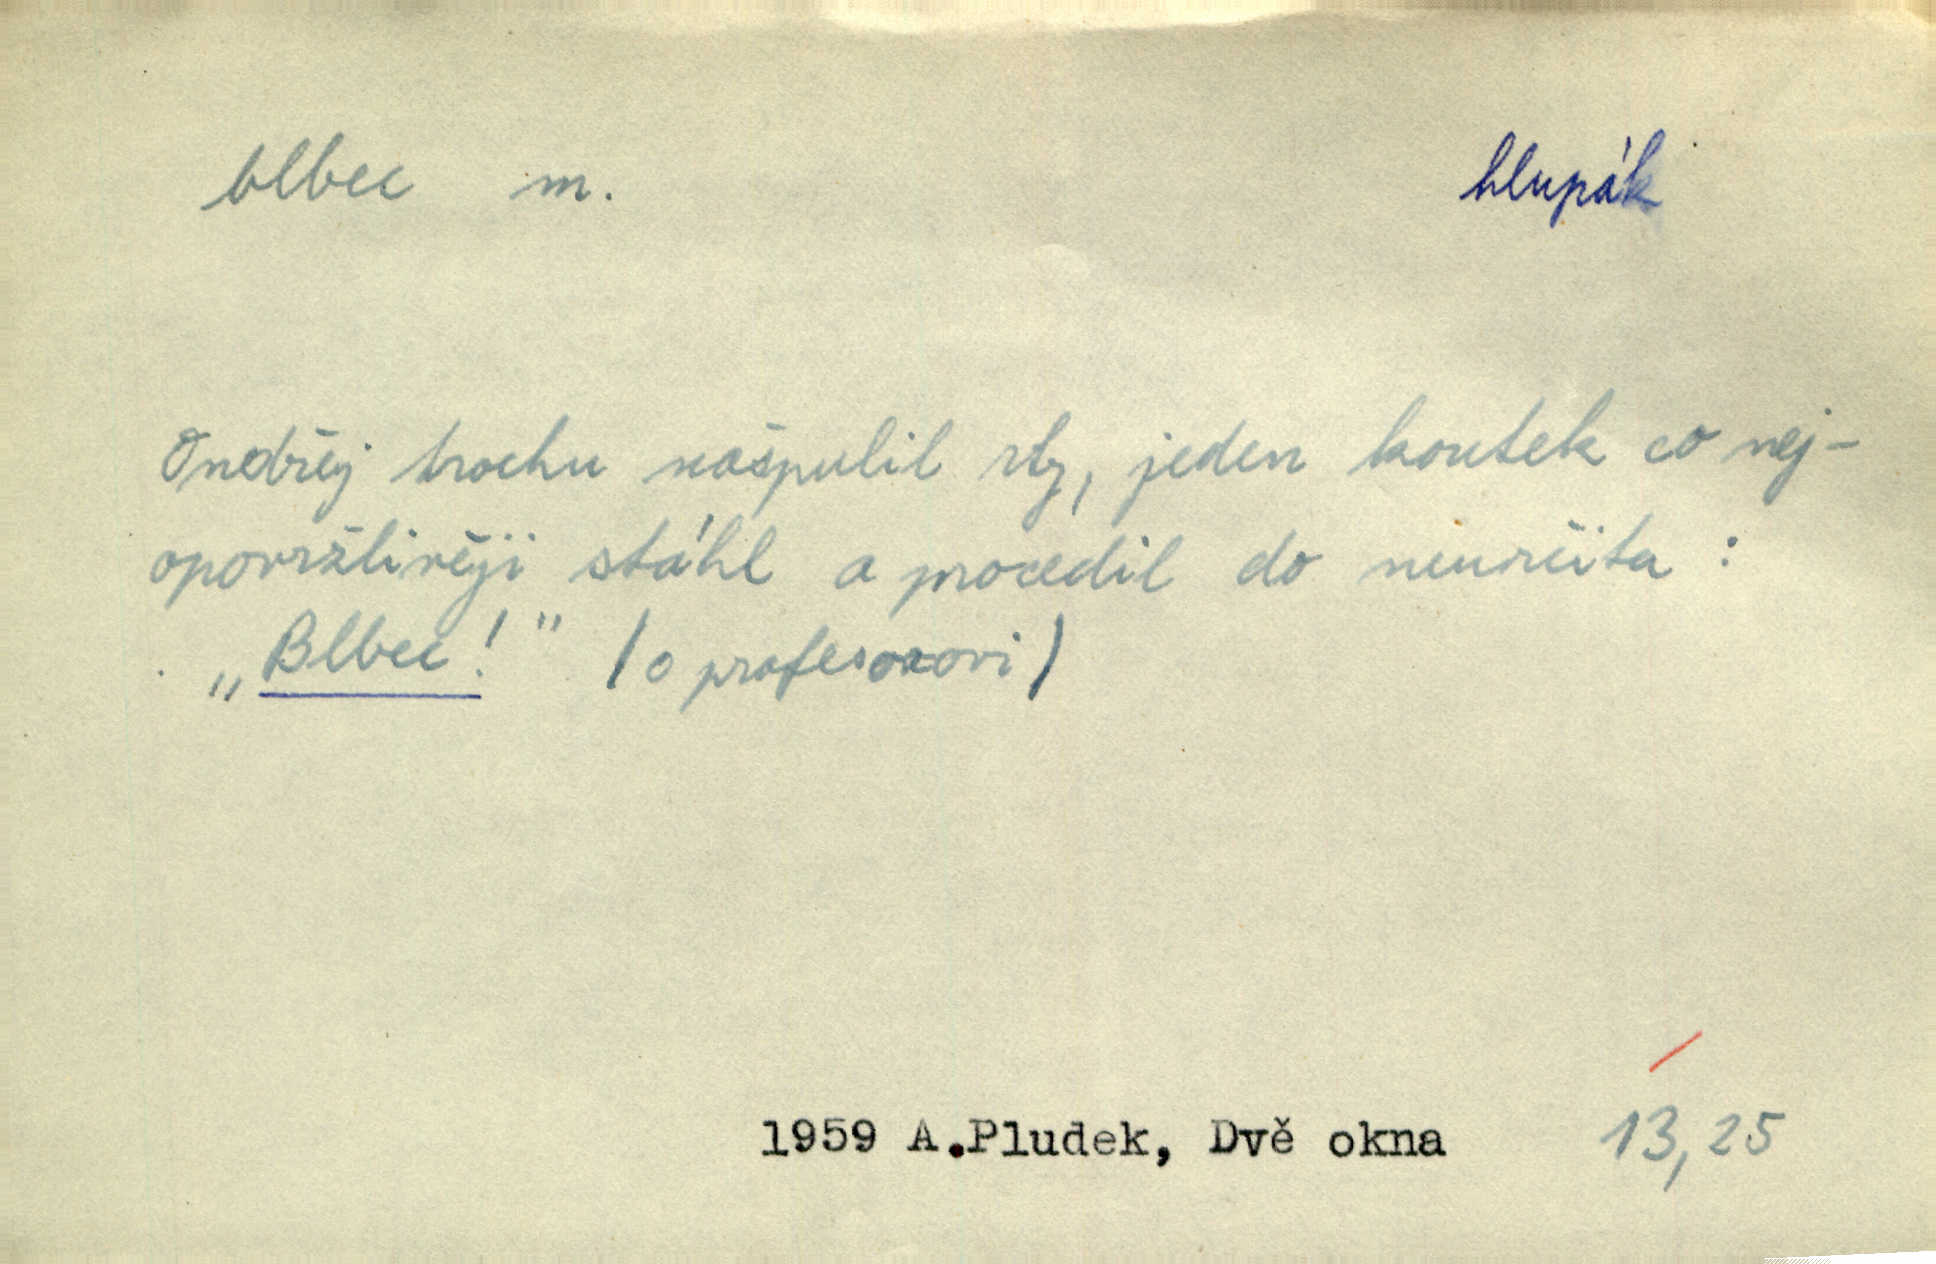 blbec m. hlupák
Ondřej trochu našpulil rty, jeden koutek co nej-
opovržlivěji stáhl a procedil do neurčita:
„Blbec!" (o profesorovi)
1959 A.Pludek, Dvě okna 13,25